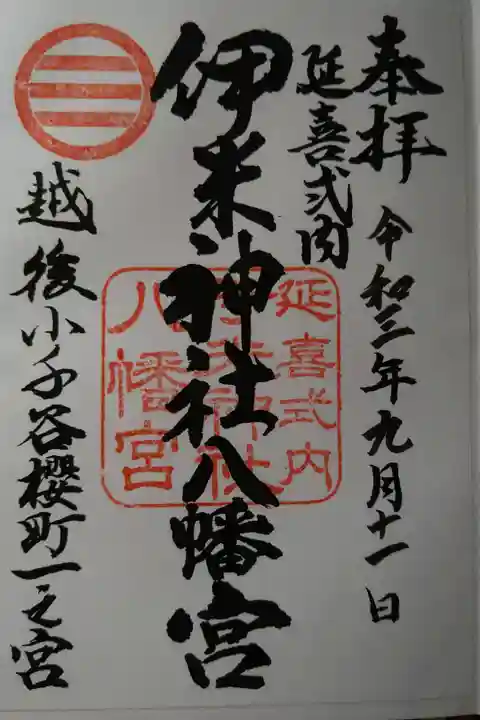 奉拝
令和三年九月十一日
延喜式内
伊米神社八幡宮
越後小千谷櫻町一之宮
延喜式内
伊米神社
八幡宮